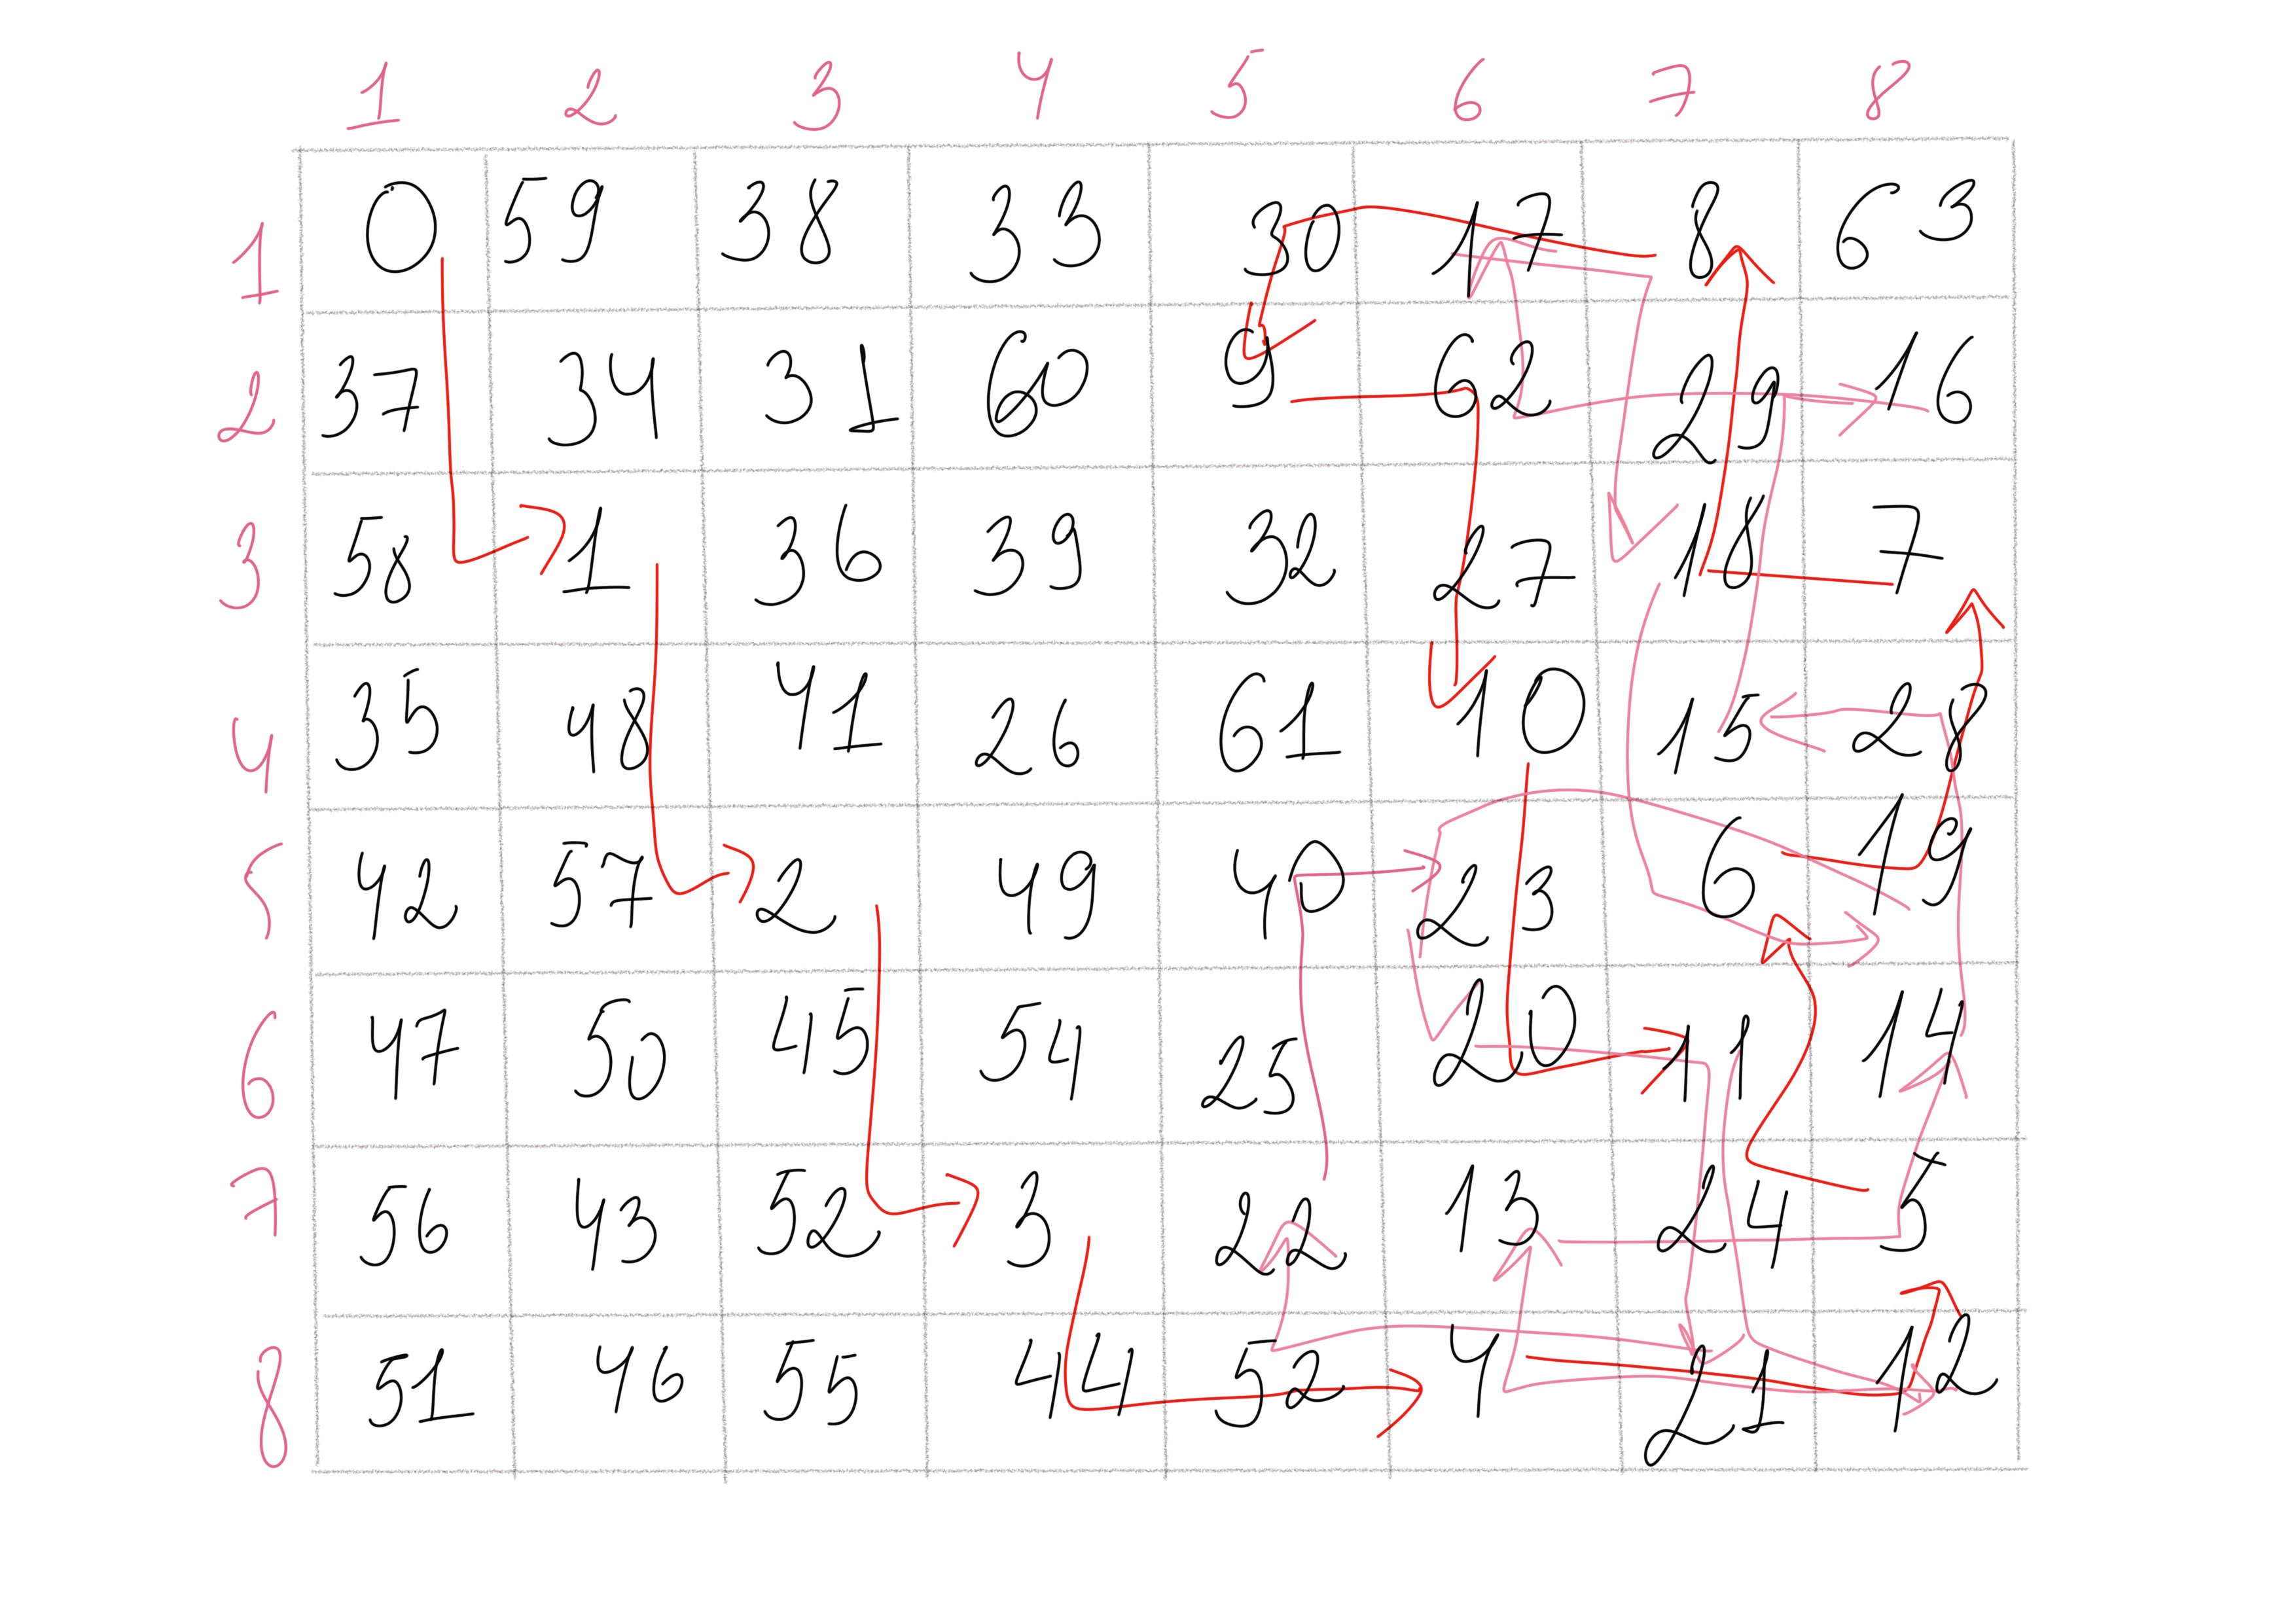 1 2 3 4 5 6 7 8
1 0 59 38 33 30 17 8 63
2 37 34 31 60 9 62 29 16
3 58 1 36 39 32 27 18 7
4 35 48 41 26 61 10 15 28
5 42 57 2 49 40 23 6 19
6 47 50 45 54 25 20 11 14
7 56 43 52 3 22 13 24 5
8 51 46 55 44 52 4 21 12